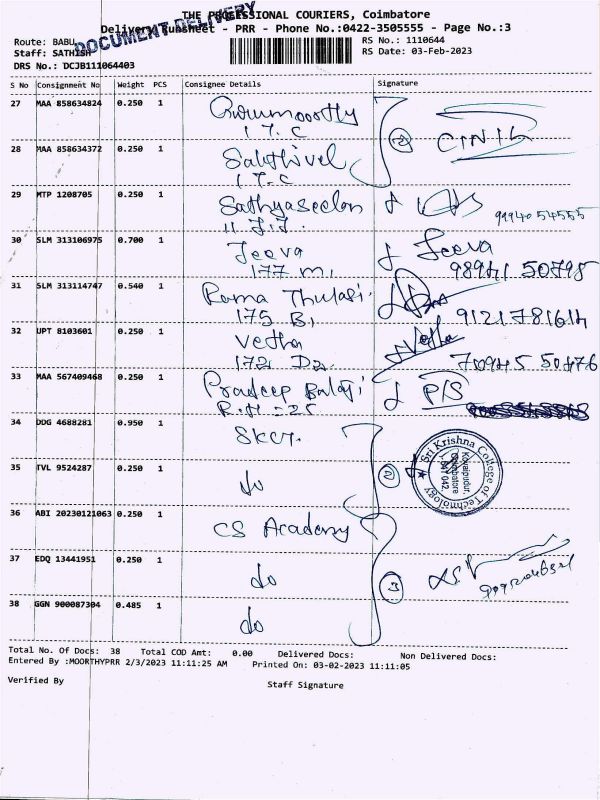 THE PROFESSIONAL COURIERS, Coimbatore
DOCUMENT DELIVERY
Delivery Runsheet - PRR - Phone No.:0422-3505555 - Page No.:3
Route: BABU
Staff: SATHISH
DRS No.: DCJB111064403
RS No.: 1110644
RS Date: 03-Feb-2023
S No Consignment No Weight PCS Consignee Details Signature
27 MAA 858634824 0.250 1 Gurumoorthy
I T.C
28 MAA 858634372 0.250 1 Sakthivel
I T.C
29 MTP 1208705 0.250 1 Sathyaseelan 9994054555
11 J.J.
30 SLM 313106975 0.700 1 Jeeva Jeeva
177 M, 98941 50795
31 SLM 313114747 0.540 1 Rama Thulasi
175 B, 9121781614
32 UPT 8103601 0.250 1 Vetha Vetha
172 D2 70945 50476
33 MAA 567409468 0.250 1 Pradeep Balaji
R.H = 25
34 DDG 4688281 0.950 1 SKCT.
35 TVL 9524287 0.250 1 do
Sri Krishna College of Technology
Kovaipudur,
Coimbatore
641 042
36 ABI 20230121063 0.250 1 CS Academy
37 EDQ 13441951 0.250 1 do
38 GGN 900087304 0.485 1 do
Total No. Of Docs: 38 Total COD Amt: 0.00 Delivered Docs: Non Delivered Docs:
Entered By :MOORTHYPRR 2/3/2023 11:11:25 AM Printed On: 03-02-2023 11:11:05
Verified By Staff Signature